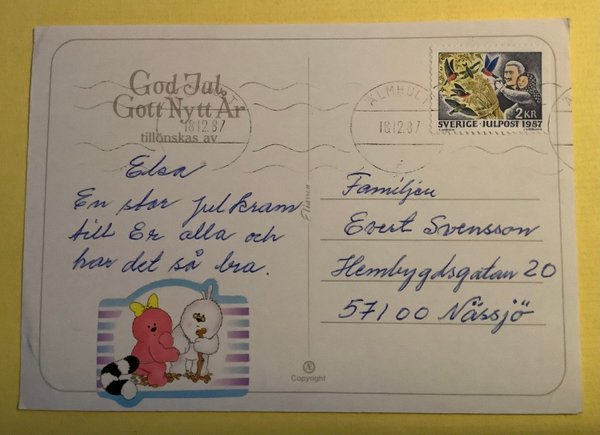 God Jul
Gott Nytt År
tillönskas av
18.12.87
Elsa
En stor julkram
till Er alla och
har det så bra.
ÄLMHULT
18.12.87
2 KR
SVERIGE · JULPOST 1987
Familjen
Evert Svensson
Hembygdsgatan 20
57100 Nässjö
Æ
Copyright